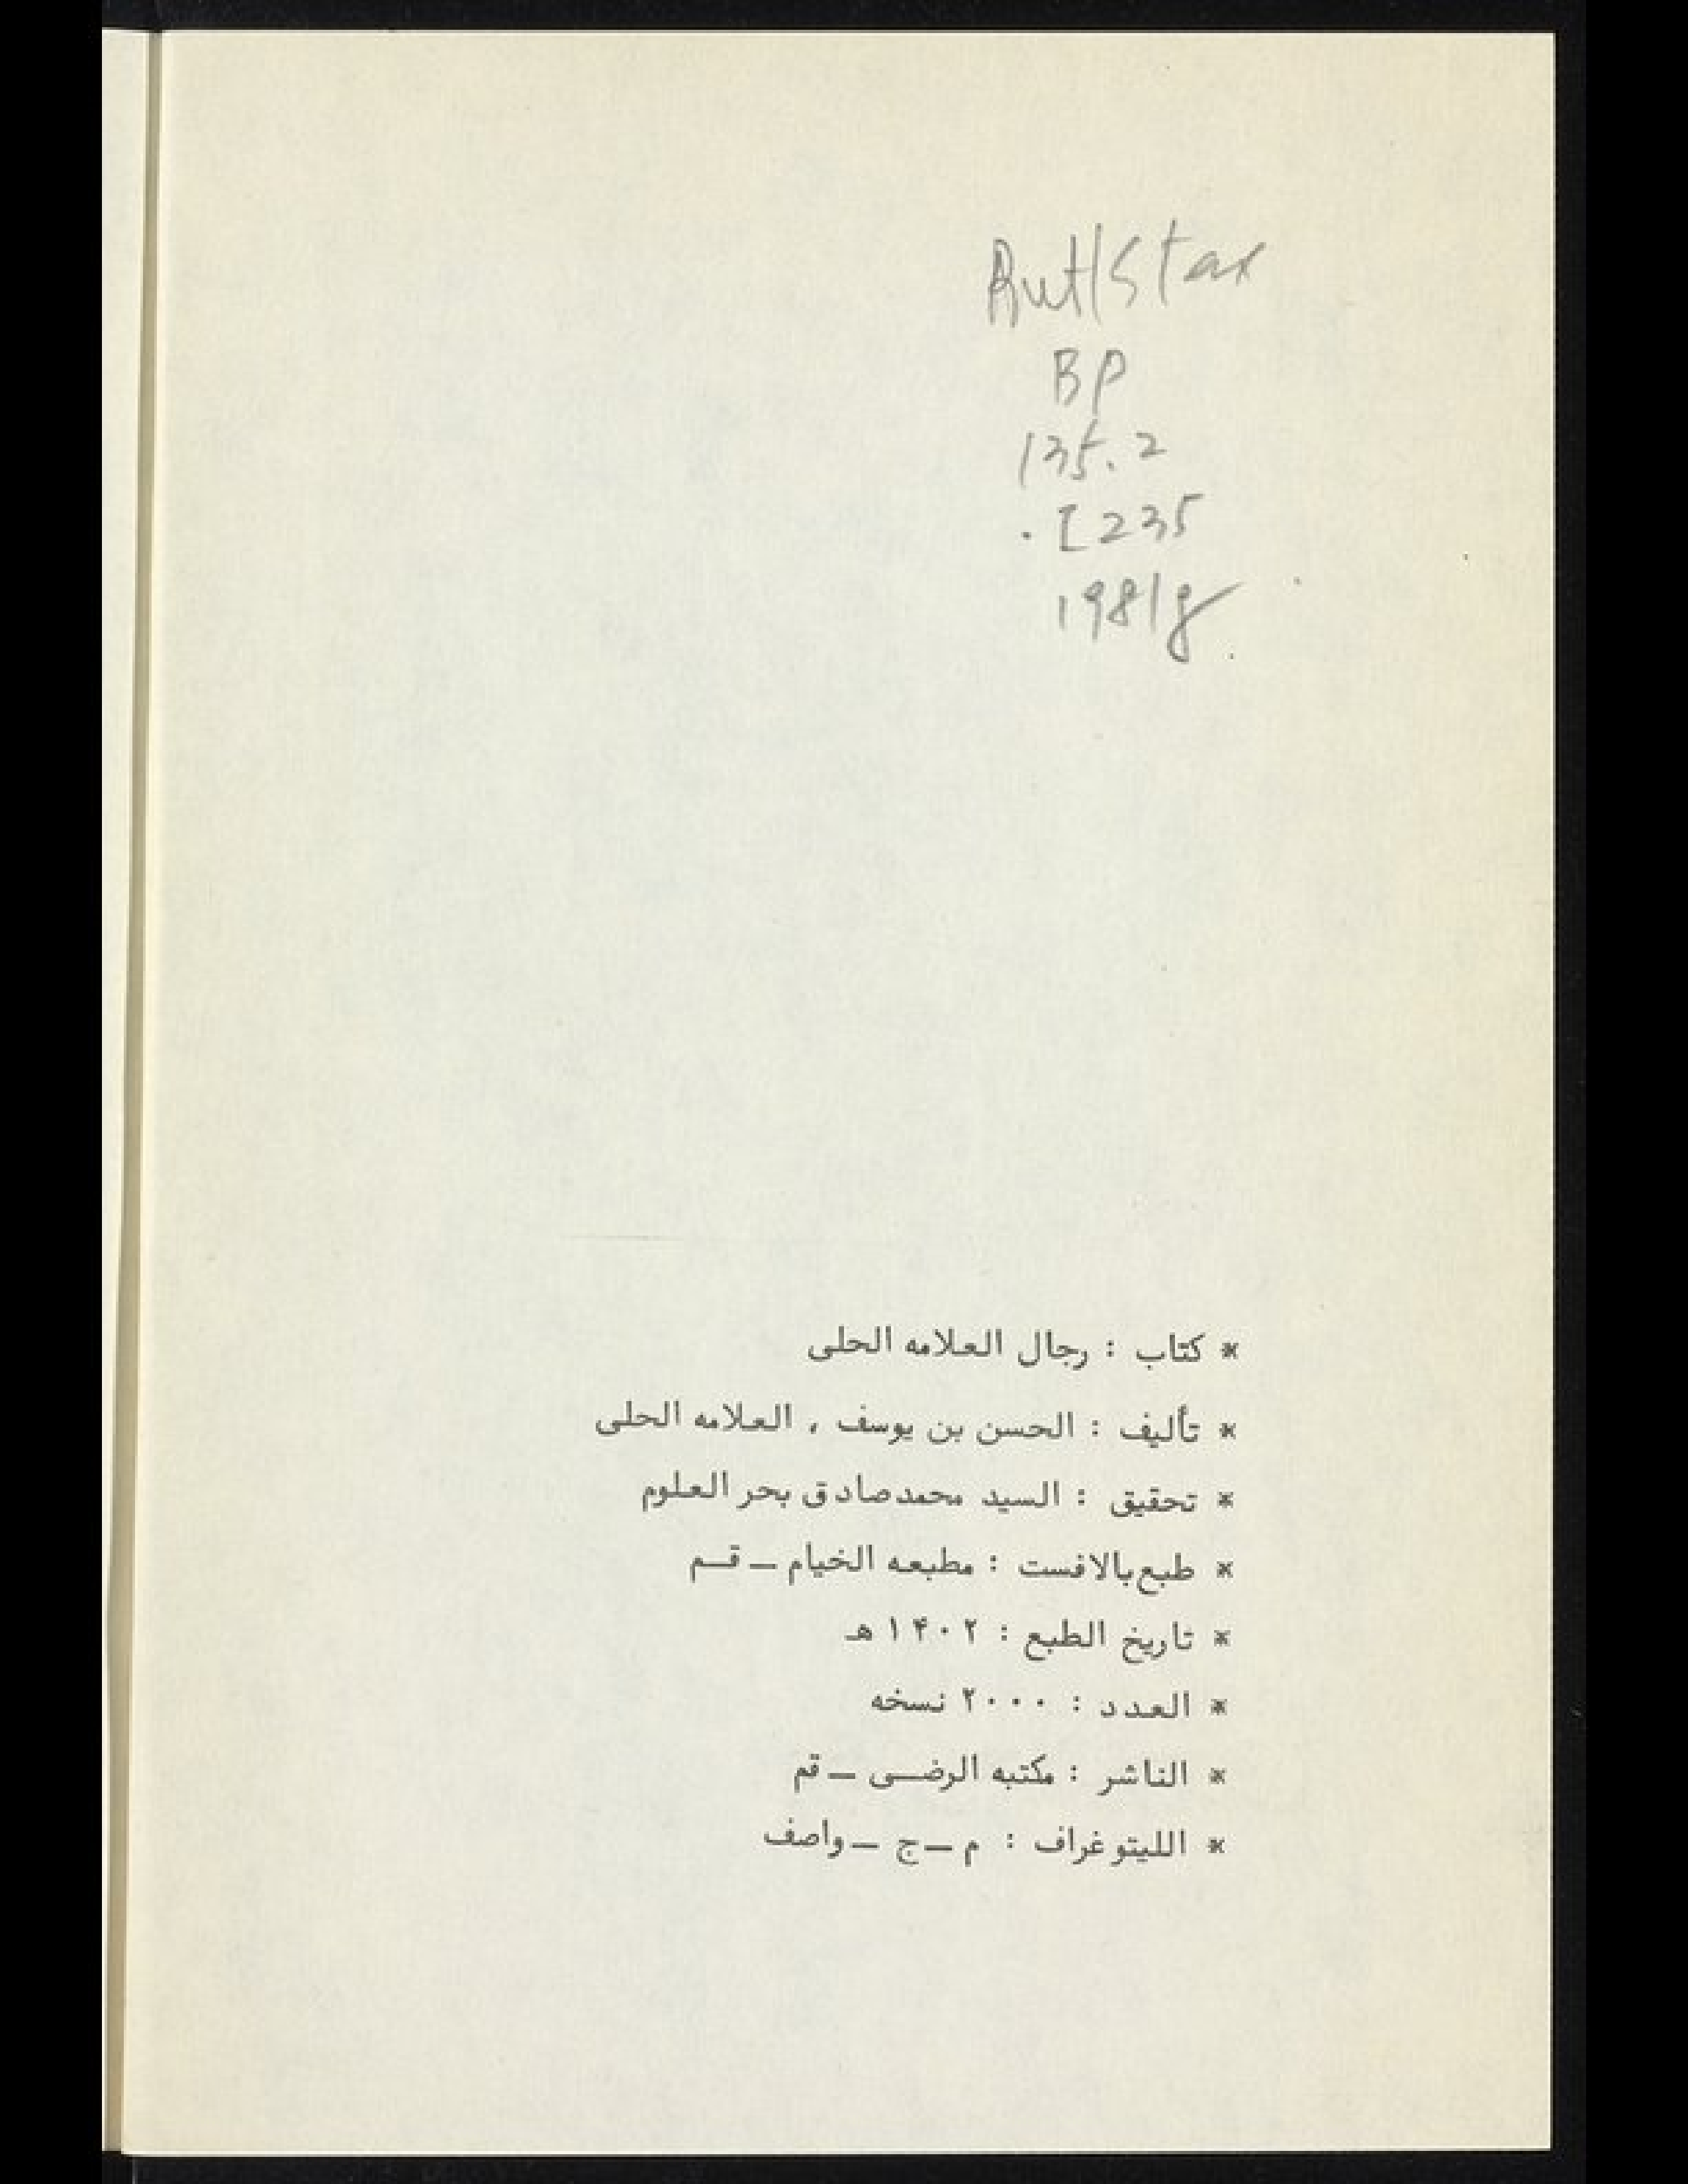 Butlstax
BP
135.2
.I235
1981g
* كتاب : رجال العلامه الحلى
* تأليف : الحسن بن يوسف ، العلامه الحلى
* تحقيق : السيد محمدصادق بحر العلوم
* طبع بالافست : مطبعه الخيام ـ قم
* تاريخ الطبع : ۱۴۰۲ هـ
* العدد : ۲۰۰۰ نسخه
* الناشر : مكتبه الرضى ـ قم
* الليتوغراف : م ـ ج ـ واصف